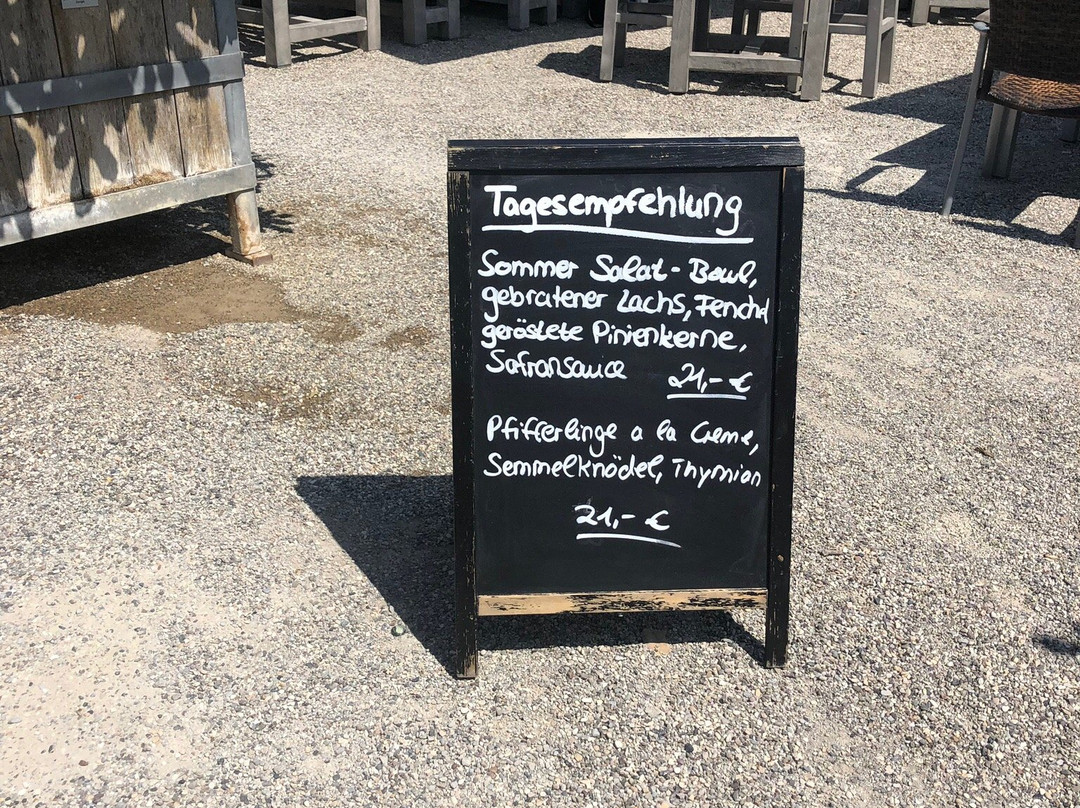 Tagesempfehlung
Sommer Salat-Bowl,
gebratener Lachs, Fenchel
geröstete Pinienkerne,
Safransauce 21,- €
Pfifferlinge a la Creme,
Semmelknödel, Thymian
21,- €